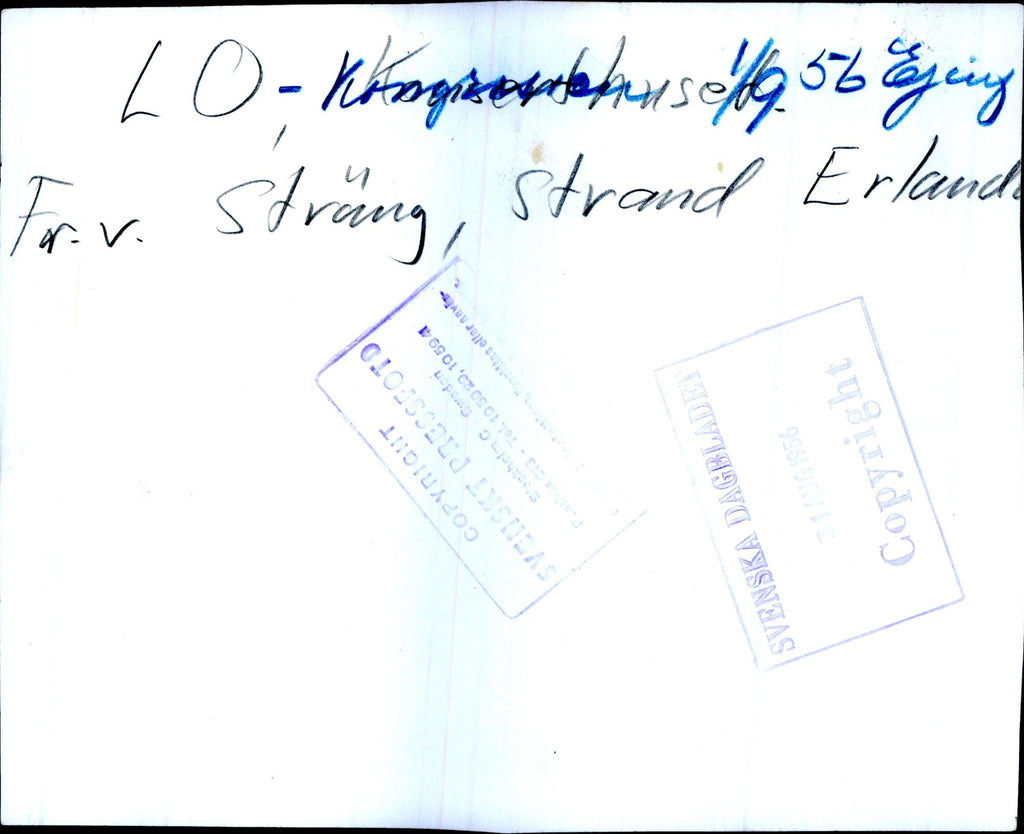 LO, - Konserthuset. 1/9 56
Fr. v. Sträng, Strand Erland
COPYRIGHT
SVENSKT PRESSFOTO
Stockholm C - Sweden
Tel. 10 59 20, 10 59 41
SVENSKA DAGBLADET
31 AUG 1956
Copyright